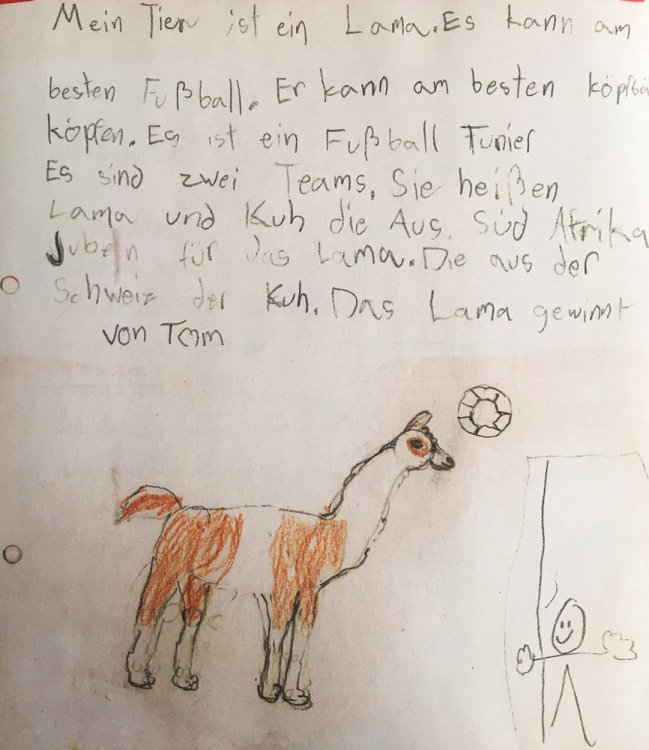 Mein Tier ist ein Lama. Es kann am
besten Fußball. Er kann am besten
köpfen. Es ist ein Fußball Tunier
Es sind zwei Teams. Sie heißen
Lama und Kuh die Aus. Süd Afrika
Jubeln für das Lama. Die aus der
Schweiz der Kuh. Das Lama gewinnt
von Tom